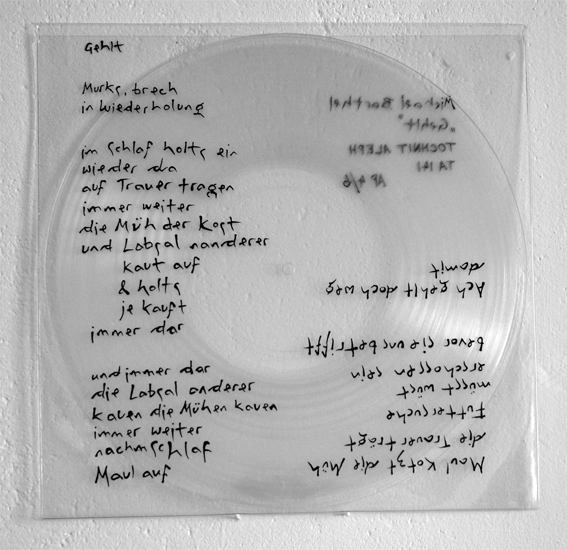 Gehlt
Murks, brech
in wiederholung
im Schlaf holts ein
wieder da
auf Trauer tragen
immer weiter
die Müh der Kost
und Labsal nanderer
kaut auf
& holts
je kauft
immer dar
und immer dar
die Labsal anderer
kauen die Mühen kauen
immer weiter
nachmschlaf
Maul auf
Maul kotzt die Müh
die Trauer trägt
Futtersuche
müsst wüst
erschossen sein
bevor sie uns betrifft
Ach gehlt doch weg
damit
Michael Barthel
„Gehlt"
TOCHNIT ALEPH
TA 141
AP 4/6